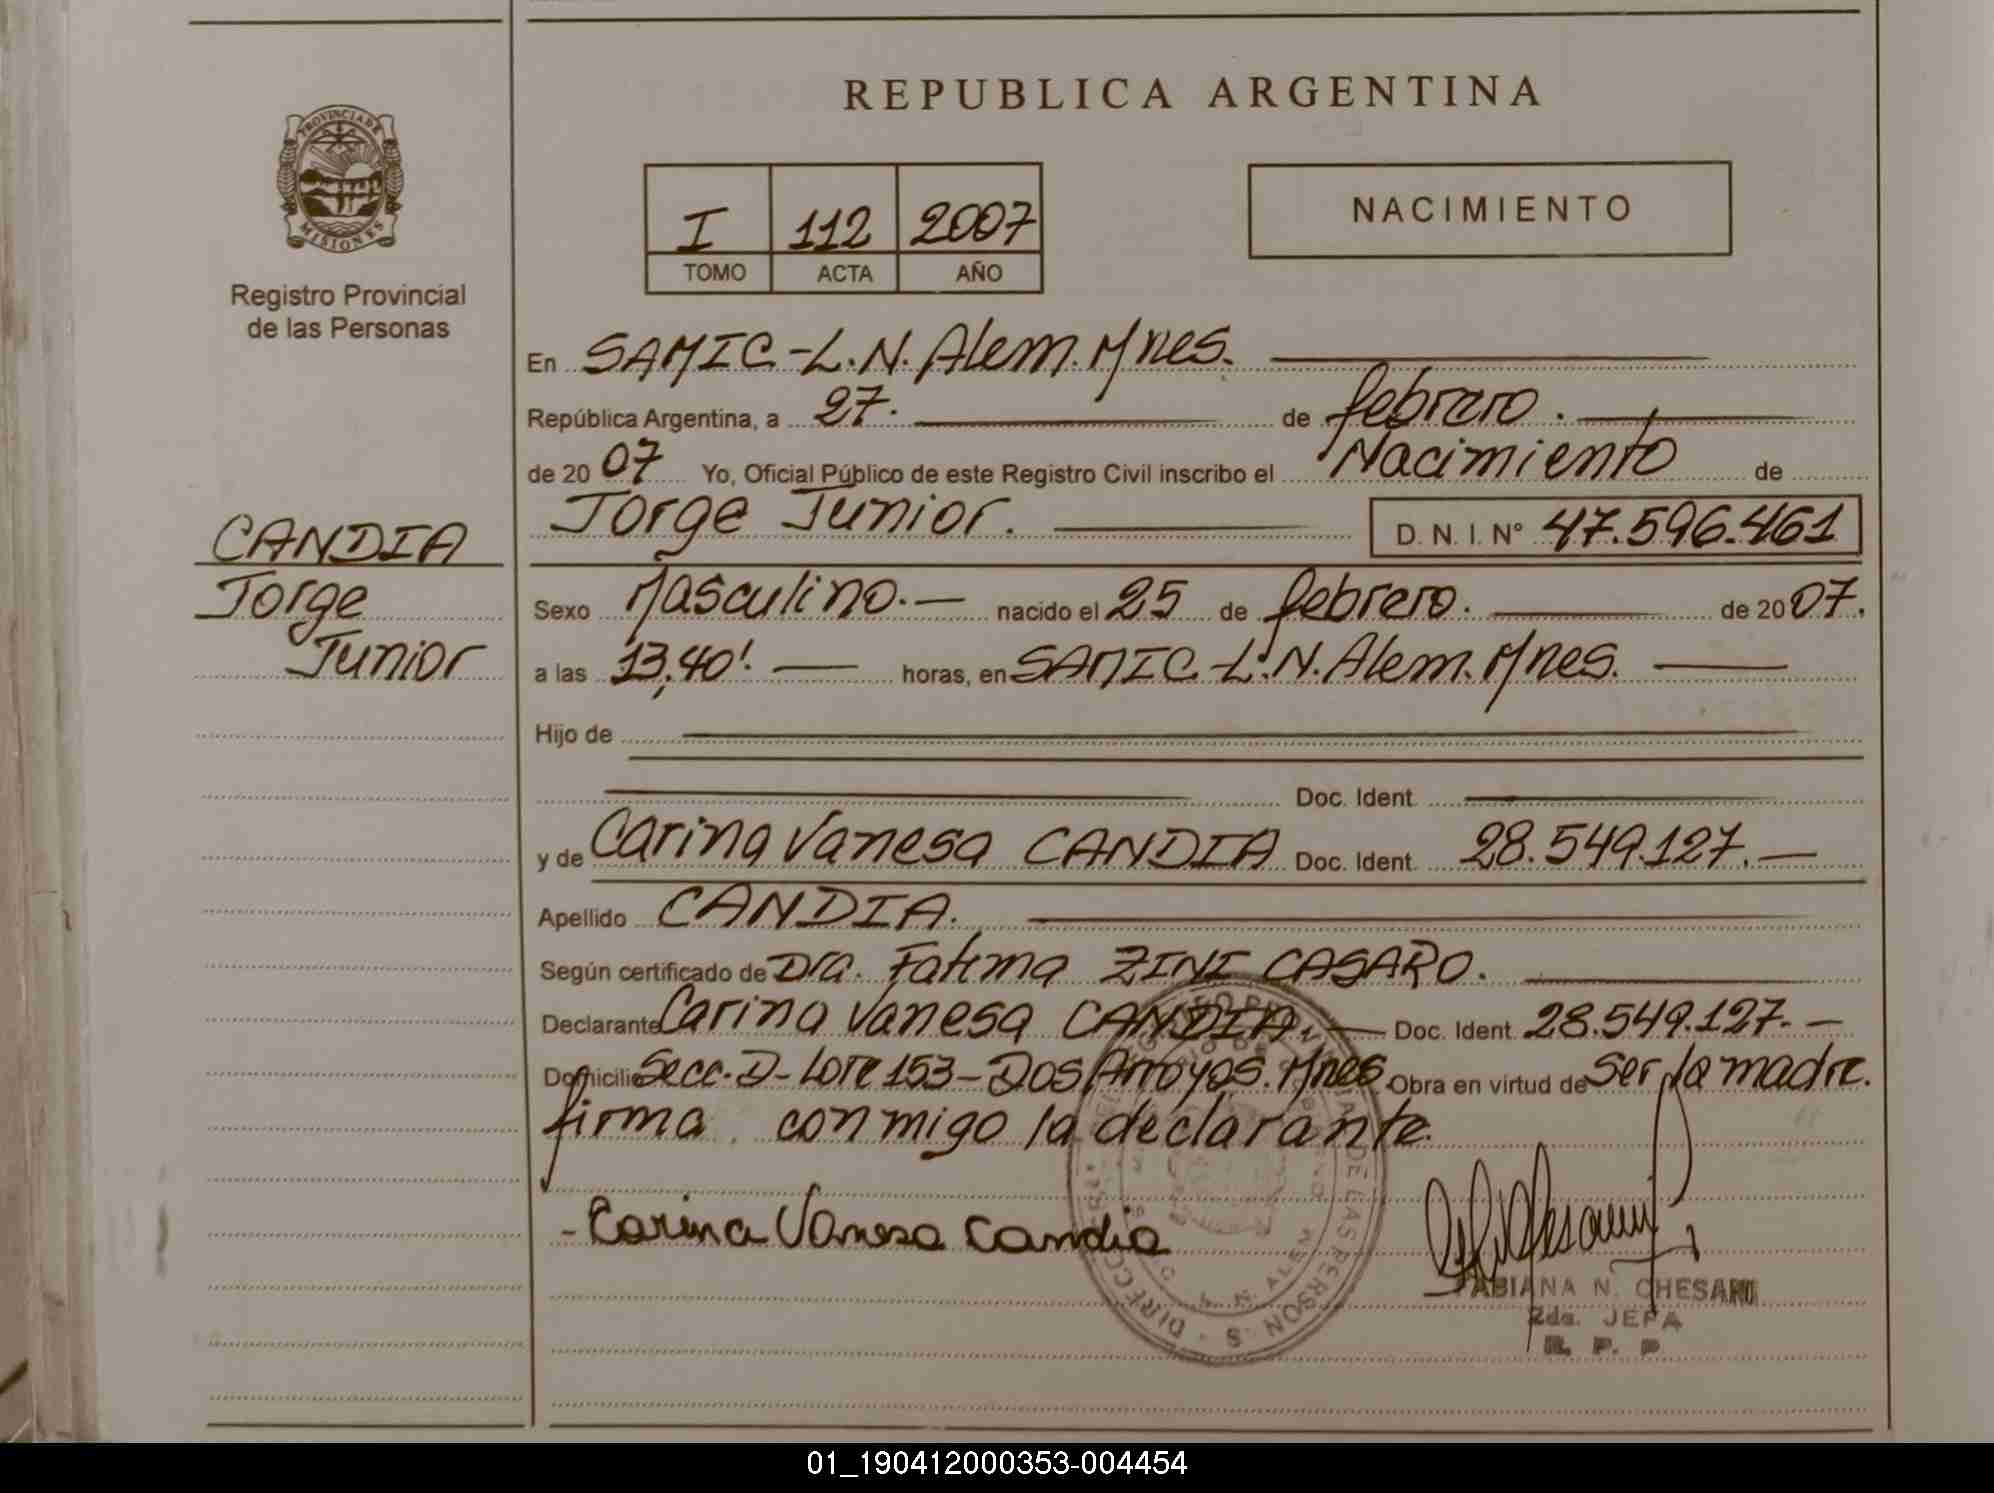 REPUBLICA ARGENTINA
PROVINCIA DE
MISIONES
Registro Provincial
de las Personas
I 112 2007
TOMO ACTA AÑO
NACIMIENTO
En SAMIC-L.N. Alem. Mnes.
República Argentina, a 27. de febrero.
de 20 07 Yo, Oficial Público de este Registro Civil inscribo el Nacimiento de
Jorge Junior. D. N. I. Nº 47.596.461
CANDIA
Jorge
Junior
Sexo Masculino.- nacido el 25 de febrero. de 20 07.
a las 13,40'. horas, en SAMIC-L.N. Alem. Mnes.
Hijo de
Doc. Ident.
y de Carina Vanesa CANDIA Doc. Ident. 28.549.127.-
Apellido CANDIA.
Según certificado de Dra. Fatima ZINI CASARO.
Declarante Carina Vanesa CANDIA.- Doc. Ident. 28.549.127.-
Domicilio Secc. D- Lote 153-Dos Arroyos. Mnes. Obra en virtud de ser la madre.
firma conmigo la declarante.
-Carina Vanesa Candia
FABIANA N. CHESANI
2da. JEFA
R. P. P
01_190412000353-004454